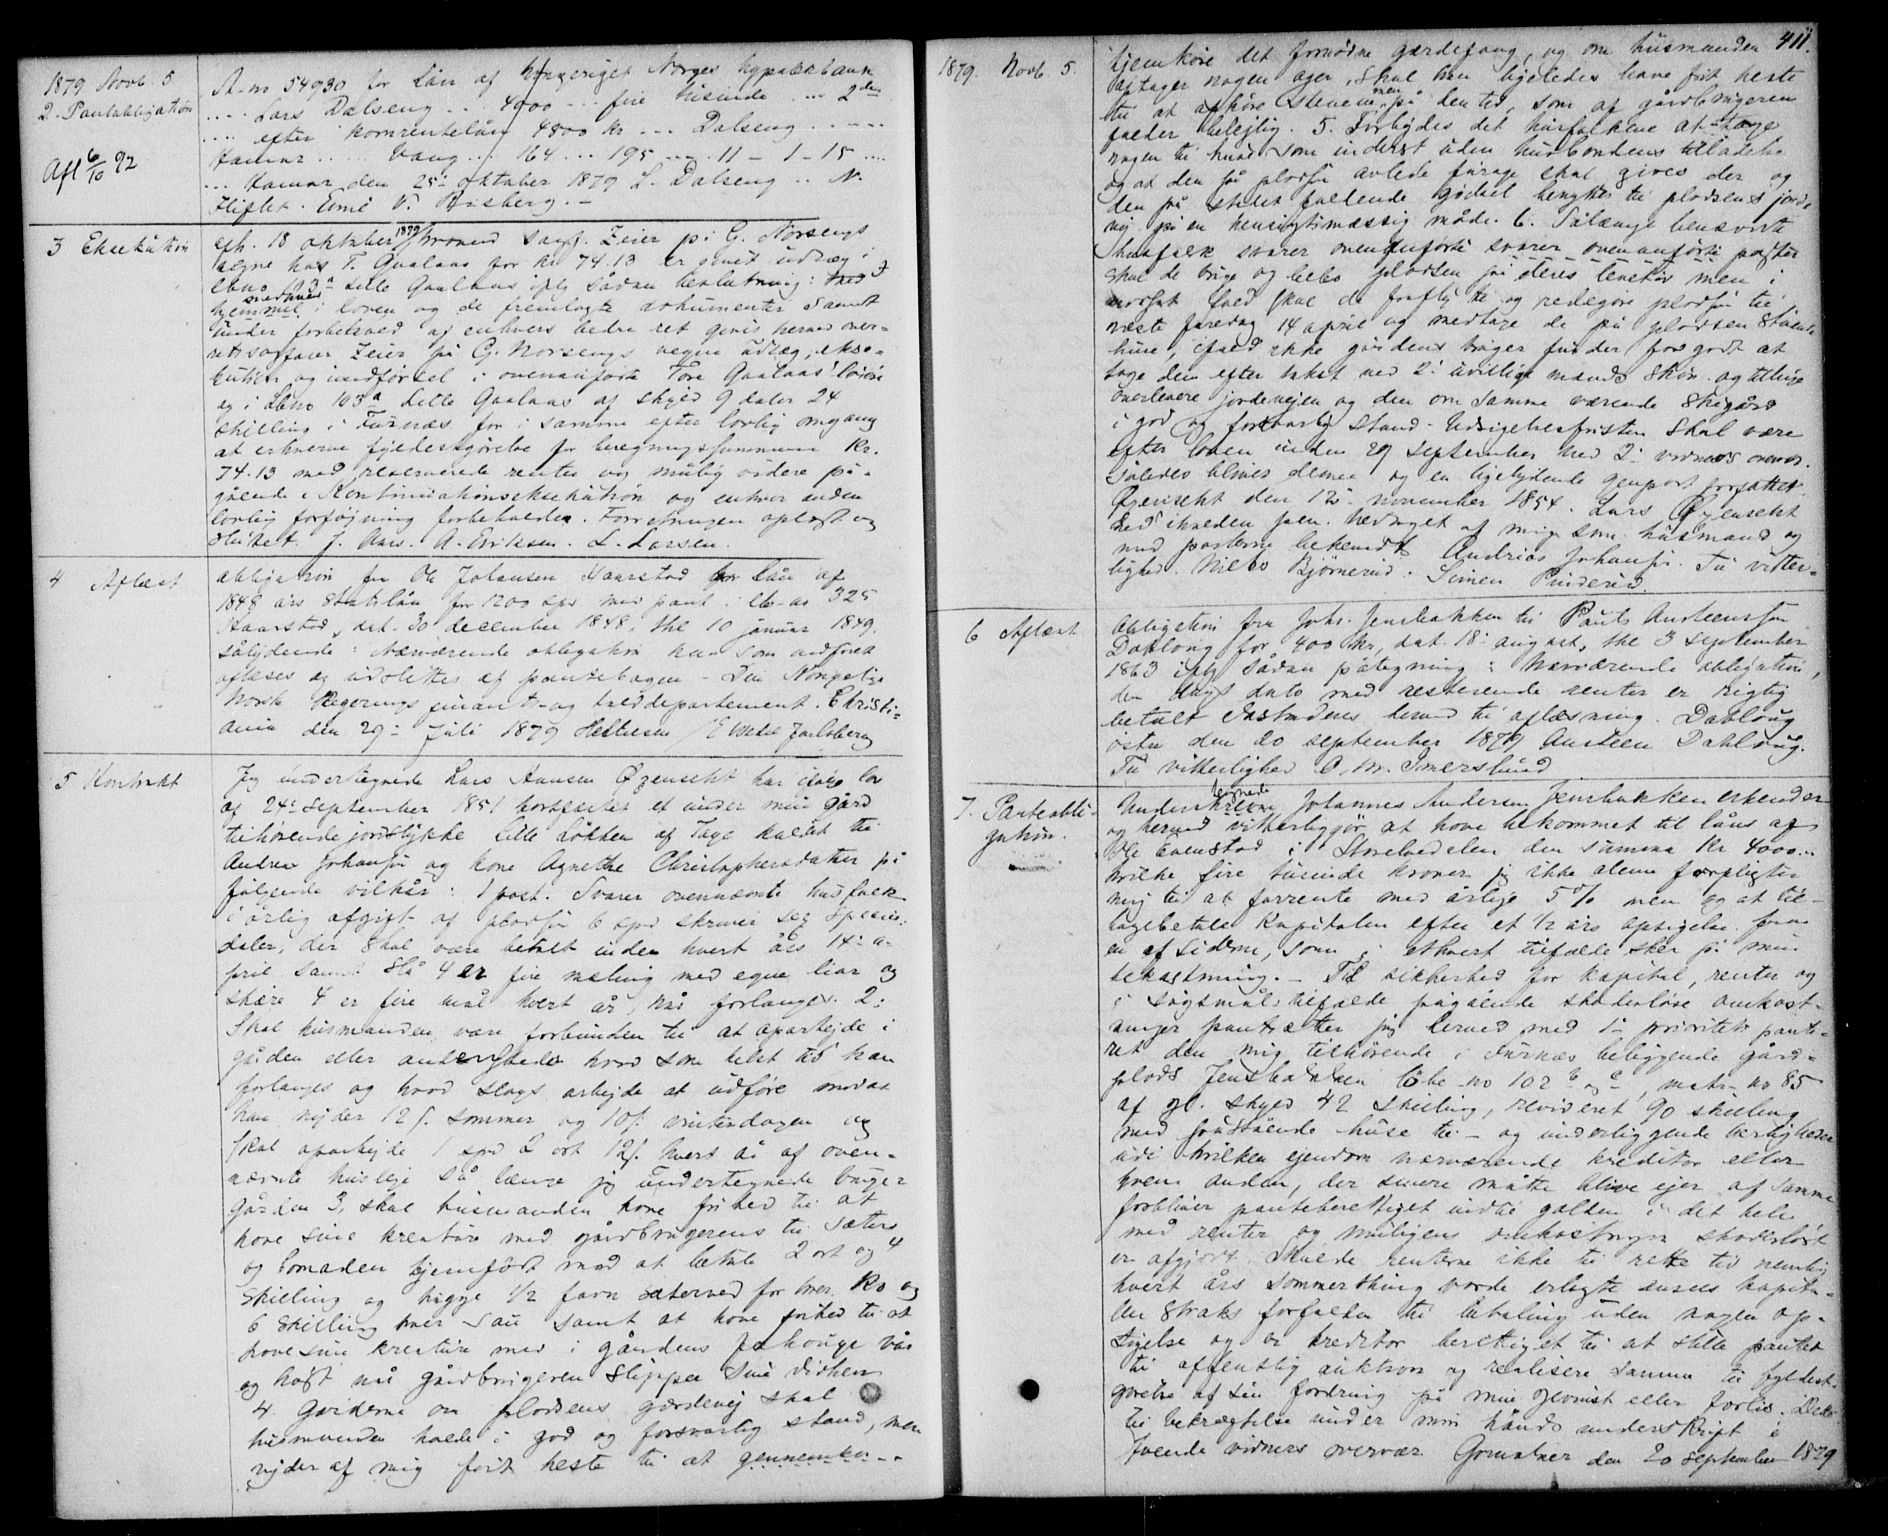 1879 Novb. 5
2. Pantobligation
Afl 6/10 92
A. no 54930 for Lån af Kongeriget Norges hypotekbank
.... Lars Dalseng .. 4000 --- fire tusinde ... 2den
... efter kornrentelån 4800 kr ... Dalseng .....
Hamar ..... Vang ... 164 ... 195 ... 11 - 1 - 15 ....
... Hamar den 25de oktober 1879 L. Dalseng .. N.
Kliflet. Emil V. Risberg. -
3 Eksekution
efh. 18 oktober 1879 hvorved sagf. Zeier på G. Norsengs
vegne hos T. Gaalaas for kr 74.13 er givet udlæg i
lbno 103a Lille Gaalaas iflg sådan beslutning: med
hjemmel i loven og de fremlagte dokumenter samt
under forbehold af enhvers bedre ret gives herved over-
retssagfører Zeier på G. Norsengs vegne udlæg, ekse-
kution og indførsel i ovenanførte Tore Gaalaas' løsøre
og i Lbno 103a Lille Gaalaas af skyld 9 daler 24
skilling i Furnæs for i samme efter lovlig omgang
at erhverve fyldestgjørelse for beregningssummen Kr.
74.13 med reserverede renter og mulig videre på-
gående. Kontinuationseksekution og enhver anden
lovlig forføjning forbeholdes. Forretningen oplæst og
sluttet. J. Aars. A. Eriksen. L. Larsen.
4 Aflæst
obligation fra Ole Johansen Haarstad for Lån af
1848 års Statslån for 1200 spd med pant i lb-no 325
Haarstad, dat. 30 december 1848, thl 10 januar 1849.
sålydende: Nærværende obligation kan som indfriet
aflæses og udslettes af pantebogen - Den Kongelige
Norsk Regerings finants- og tolddepartement. Christi-
ania den 29de Juli 1879 Helliesen / Wedel Jarlsberg
5 Kontrakt
Jeg undertegnede Lars Hansen Øgenseht har ifølge lov
af 24de september 1851 bortfæstet et under min gård
tilhørende jordstykke Lille Løkken af Tage kaldet til
Andreas Johansen og kone Agnethe Christophersdatter på
følgende vilkår: 1 post. Svarer ovennævnte husfolk
i årlig afgift af pladsen 6 spd skriver sex Specie-
daler, der skal være betalt inden hvert års 14de a-
pril samt slå 4 er fire mæling med egne liar og
skære 4 er fire mål hvert år, når forlanges. 2:
Skal husmanden være forbunden til at oparbejde i
gården eller andensteds hvad som helst tid han
forlanges og hvad slags arbejde at udføre imod at
han nyder 12 s. sommer og 10 s. vinterdagen og
skal oparbejde 1 spd 2 ort 12 s. hvert år af oven-
nævnte husleje så længe jeg undertegnede bruger
gården 3, skal husmanden have frihed til at
have sine kreature med gårdbrugerens til Sæters
og bomaden hjemført mod at betale 2 ort og 4
skilling og hugge 1/2 favn sæterved for hver ko og
6 skilling hver sau samt at have frihed til at
have sine kreature med i gårdens påhauge vår
og høst når gårdbrugeren slipper sine didhen
4. Gjærderne om pladsens gjærdevej skal
husmanden holde i god og forsvarlig stand, men
nyder af mig frit heste til at gennemkø--
411.
1879. Novb. 5.
hjemkøre det fornødne gærdefang, og om husmanden
optager nogen ager, skal han ligeledes have frit heste
til at afkøre stenene, men på den tid, som af gårdbrugeren
falder belejlig. 5. Forbydes det husfolkene at tage
nogen til huse som inderst uden husbondens tilladelse
og at den på pladsen avlede furage skal gives der og
den på stedet faldende gjødsel benyttes til pladsens jord,
vej på en hensigtsmæssig måde. 6. Sålænge benævnte
husfolk svarer ovenanførte svarer ovenanførte poster
skal de bruge og bebo pladsen på deres levetid men i
modsat fald skal de fraflytte og redegøre pladsen til
næste faredag 14 april og medtage de på pladsen stående
huse, ifald ikke gårdens bruger finder for godt at
tage dem efter takst ved 2de uvillige mænds skøn og tillige
overlevere jordevejen og den om samme værende skigård
i god og forsvarlig stand. Udsigelsesfristen skal være
efter loven inden 29 september med 2de vidners overvær.
Således bliver denne og en ligelydende genpart forfattet.
Øgenseht den 12te november 1854. Lars Øgenseht
med iholden pen. Vedtaget af mig som husmand og
med posterne bekendt. Andreas Johansen. Til vitter-
lighed. Niels Bjørnerud. Simen Pinderud.
6 Aflæst
Obligation fra Johs. Jensbakken til Pauls Austeenssøn
Dahloug for 400 kr, dat. 18de august, thl 3 september
1863 iflg sådan påtegning: Nærværende obligation,
den Dags dato med resterende renter er rigtig
betalt. Indstædes herved til aflæsning. Dahloug
østre den 20 september 1879 Austeen Dahloug.
Til vitterlighed O. M. Smerslund
7. Panteobli-
gation.
Undertegnede Johannes Andersen Jensbakken erkender
og herved vitterliggjør at have bekommet til låns af
Ole Evenstad i Storelvedalen den summa Kr 4000..
hvilke fire tusinde kroner jeg ikke alene forpligter
mig til at forrente med årlige 5 % men og at til-
bagebetale Kapitalen efter et 1/2 års opsigelse fra
en af siderne, som i ethvert tilfælde sker på min
bekostning. - Til sikkerhed for kapital, renter og
i søgsmålstilfælde pågående skadesløse omkost-
ninger pantsætter jeg herved med 1ste prioritets pante-
ret den mig tilhørende i Furnæs beliggende gård-
plads Jensbakken løbe-no 102 b og c matr-no 85
af gl. skyld 42 skilling, revideret 90 skilling
med påstående huse til- og underliggende herligheder
udi hvilken ejendom nærværende kreditor eller
hvem anden, der senere måtte blive ejer af samme
forbliver panteberettiget indtil gælden i det hele
med renter og muligens omkostninger skadesløst
er afgjort. Skulde renterne ikke til rette tid nemlig
hvert års sommerthing vorde erlagte ansees kapita-
len straks forfalden til betaling uden nogen op-
sigelse og er kreditor berettiget til at stille pantet
til offentlig auktion og realisere samme til fyldest-
gørelse af sin fordring på min gevinst eller forlis. Dette
til bekræftelse under min hånds underskrift i
tvende vidners overvær. Gomalner den 20 september 1879